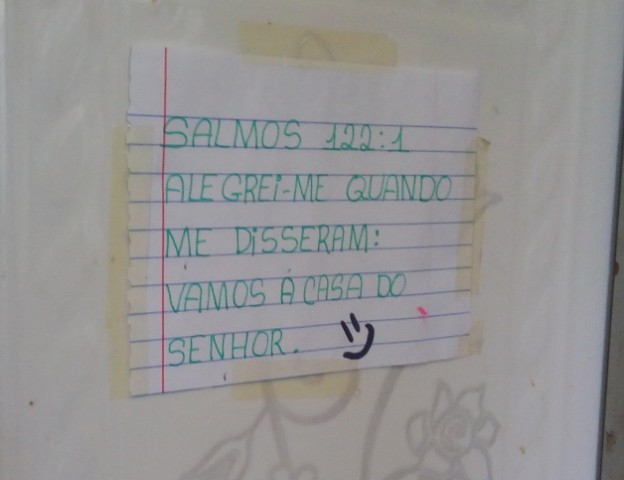 SALMOS 122:1
ALEGREI-ME QUANDO
ME DISSERAM:
VAMOS À CASA DO
SENHOR.